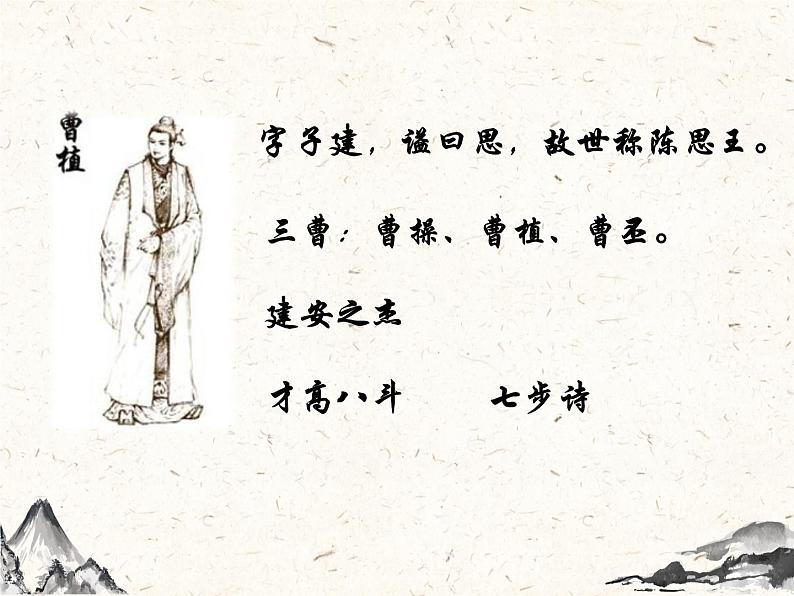 曹植
字子建，谥曰思，故世称陈思王。
三曹：曹操、曹植、曹丕。
建安之杰
才高八斗 七步诗